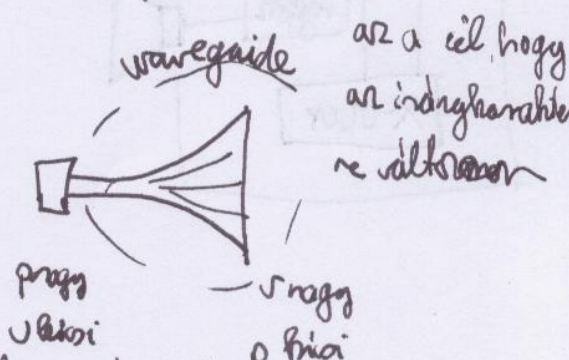 waveguide
az a cél, hogy
az iránykarakte
ne változzon
p nagy
v kicsi
v nagy
p kicsi